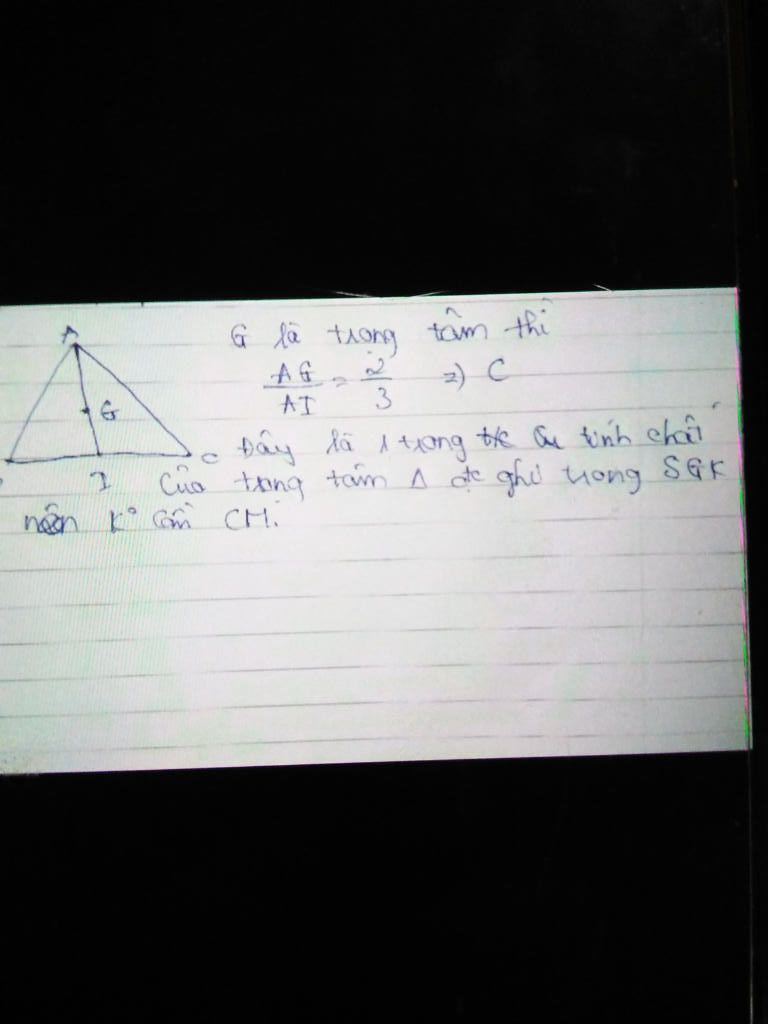 A
G là trọng tâm thì
AG/AI = 2/3 => C
G
C
Đây là 1 trong các tính chất
I
của trọng tâm Δ đc ghi trong SGK
nên K° cần CM.